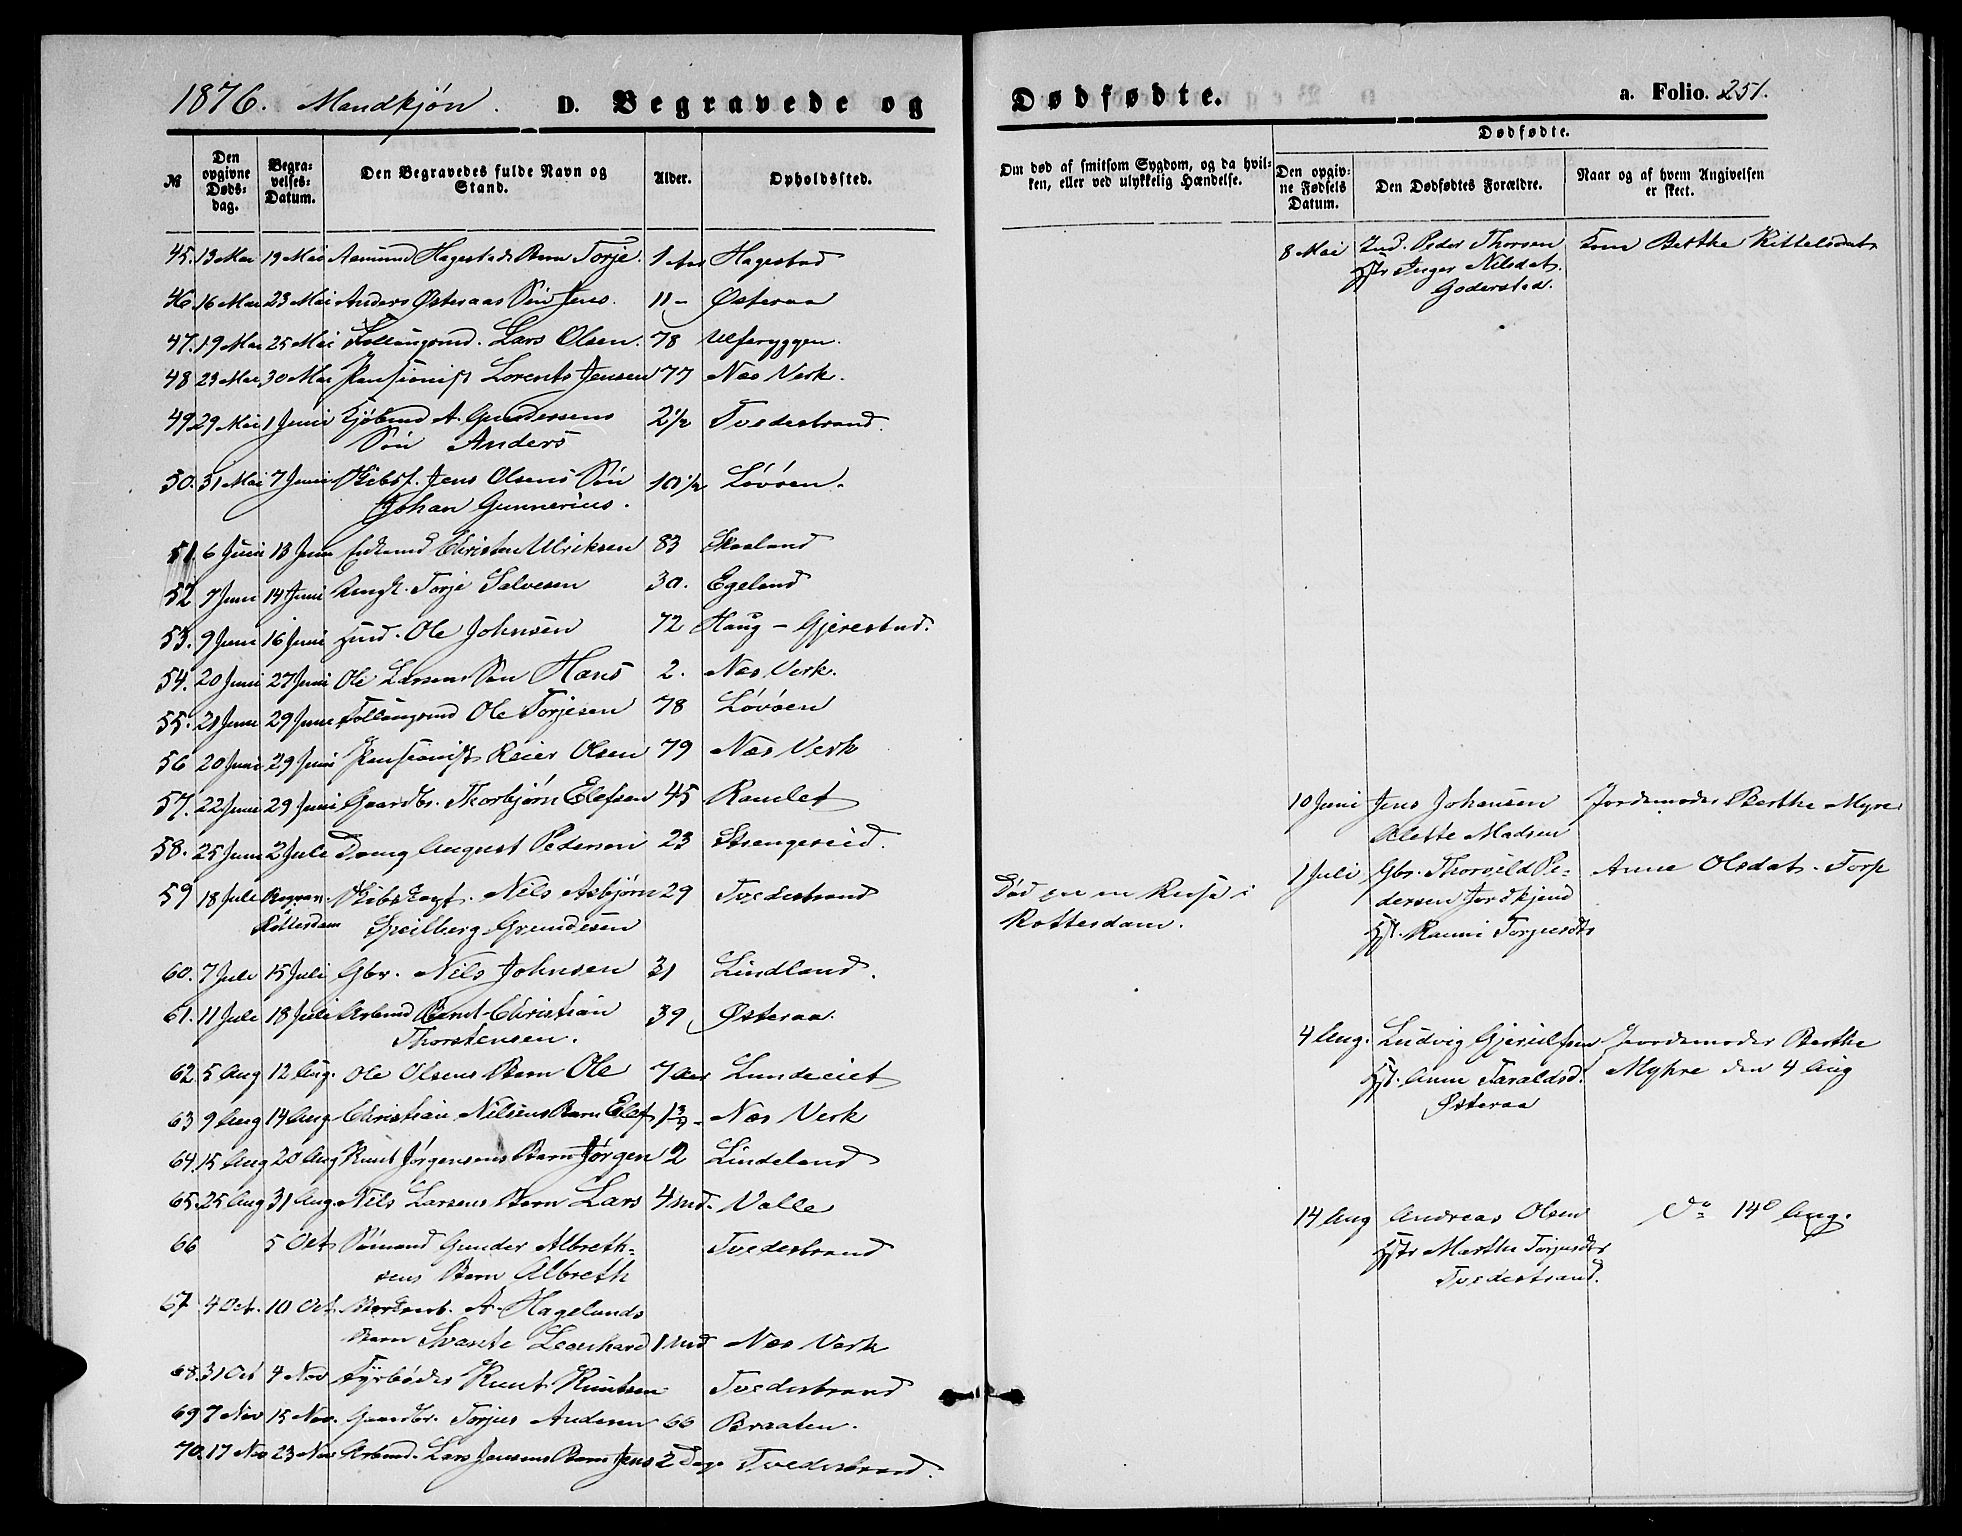 1876. Mandkjøn. D. Begravede og
№
Den opgivne Døds-dag.
Begra-velses-Datum.
Den Begravedes fulde Navn og Stand.
Alder.
Opholdssted.
45. 13 Mai 19 Mai Asmund Hagestads Barn Torje. 1 Aar Hagestad
46. 16 Mai 23 Mai Anders Østeraas Søn Jens. 11 – Østeraa
47. 19 Mai 25 Mai Lars Olsen. 78 Ulfsryggen.
48 23 Mai 30 Mai Pensionist Lorents Jensen 77 Næs Verk.
49. 29 Mai 1 Juni Kjøbmd A. Gundersens 2½ Tvedestrand.
Søn Anders
50. 31 Mai 7 Juni Skibst. Jens Olsens Søn 10½ Løvøen.
Johan Gunnerius.
51. 6 Juni 13 Juni Christen Ulriksen 83 Skaaland
52 7 Juni 14 Juni Ungk. Torje Salvesen 30. Egeland
53. 9 Juni 16 Juni Ind. Ole Johnsen 72 Haug – Gjerestad.
54. 20 Juni 27 Juni Ole Larsens Søn Hans 2. Næs Verk.
55. 21 Juni 29 Juni Ole Torjesen 78 Løvøen
56 20 Juni 29 Juni Pensionist Reier Olsen 79 Næs Verk
57. 22 Juni 29 Juni Gaardbr. Thorbjørn Elefsen 45 Ramlet
58. 25 Juni 2 Juli Dreng August Pedersen 23 Strengereid.
59 18 Juli Begrav. Nils Asbjørn 29 Tvedestrand
i Rotterdam Speilberg Grundesen
60. 7 Juli 15 Juli Gbr. Nils Johnsen 31 Lindland.
61. 11 Juli 18 Juli Arbmd Bent Christian 39 Østeraa.
Thorstensen.
62. 5 Aug 12 Aug. Ole Olsens Barn Ole 7 Aar Lundeiet
63 9 Aug 14 Aug Christian Nilsens Barn Elef 1¾ – Næs Verk
64. 15 Aug 20 Aug Knut Jørgensens Barn Jørgen 2 Lindeland
65. 25 Aug 31 Aug. Nils Larsens Barn Lars 4 Md. Valle
66 5 Oct Sømand Gunder Albreth- Tvedestrand
sens Barn Albreth
67 4 Oct. 10 Oct. A. Hagelunds
Barn Svante Leonhard 1 Md Næs Verk
68. 31 Oct 4 Nov Fyrbøder Knut Knutsen Tvedestrand
69 7 Nov 15 Nov. Gaardbr. Torjus Andersen 66 Braaten.
70. 17 Nov 23 Nov Arbmd. Lars Jensens Barn Jens 2 Dage Tvedestrand.
Dødfødte. a. Folio. 251.
Om død af smitsom Sygdom, og da hvil-
ken, eller ved ulykkelig Hændelse.
Dødfødte.
Den opgiv-ne Fødsels Datum.
Den Dødfødtes Forældre.
Naar og af hvem Angivelsen er skeet.
8 Mai Ind. Peder Thorsen Kone Berthe Kittelsdat.
Hstr Inger Nilsdat.
Goderstad.
10 Juni Jens Johansen Jordemoder Berthe Myre
Alette Madsen
1 Juli Gbr. Thorvild Pe- Anne Olsdat. Torp
dersen Jordkjend
Hst. Ranni Torjusdtr
Død paa en Reise i
Rotterdam.
4 Aug. Ludvig Gjeruldsen Jordemoder Berthe
Hst. Anne Taraldsd. Myhre den 4 Aug
Østeraa
14 Aug Andreas Olsen Do 14d Aug.
Hstr Marthe Torjusdtr
Tvedestrand.